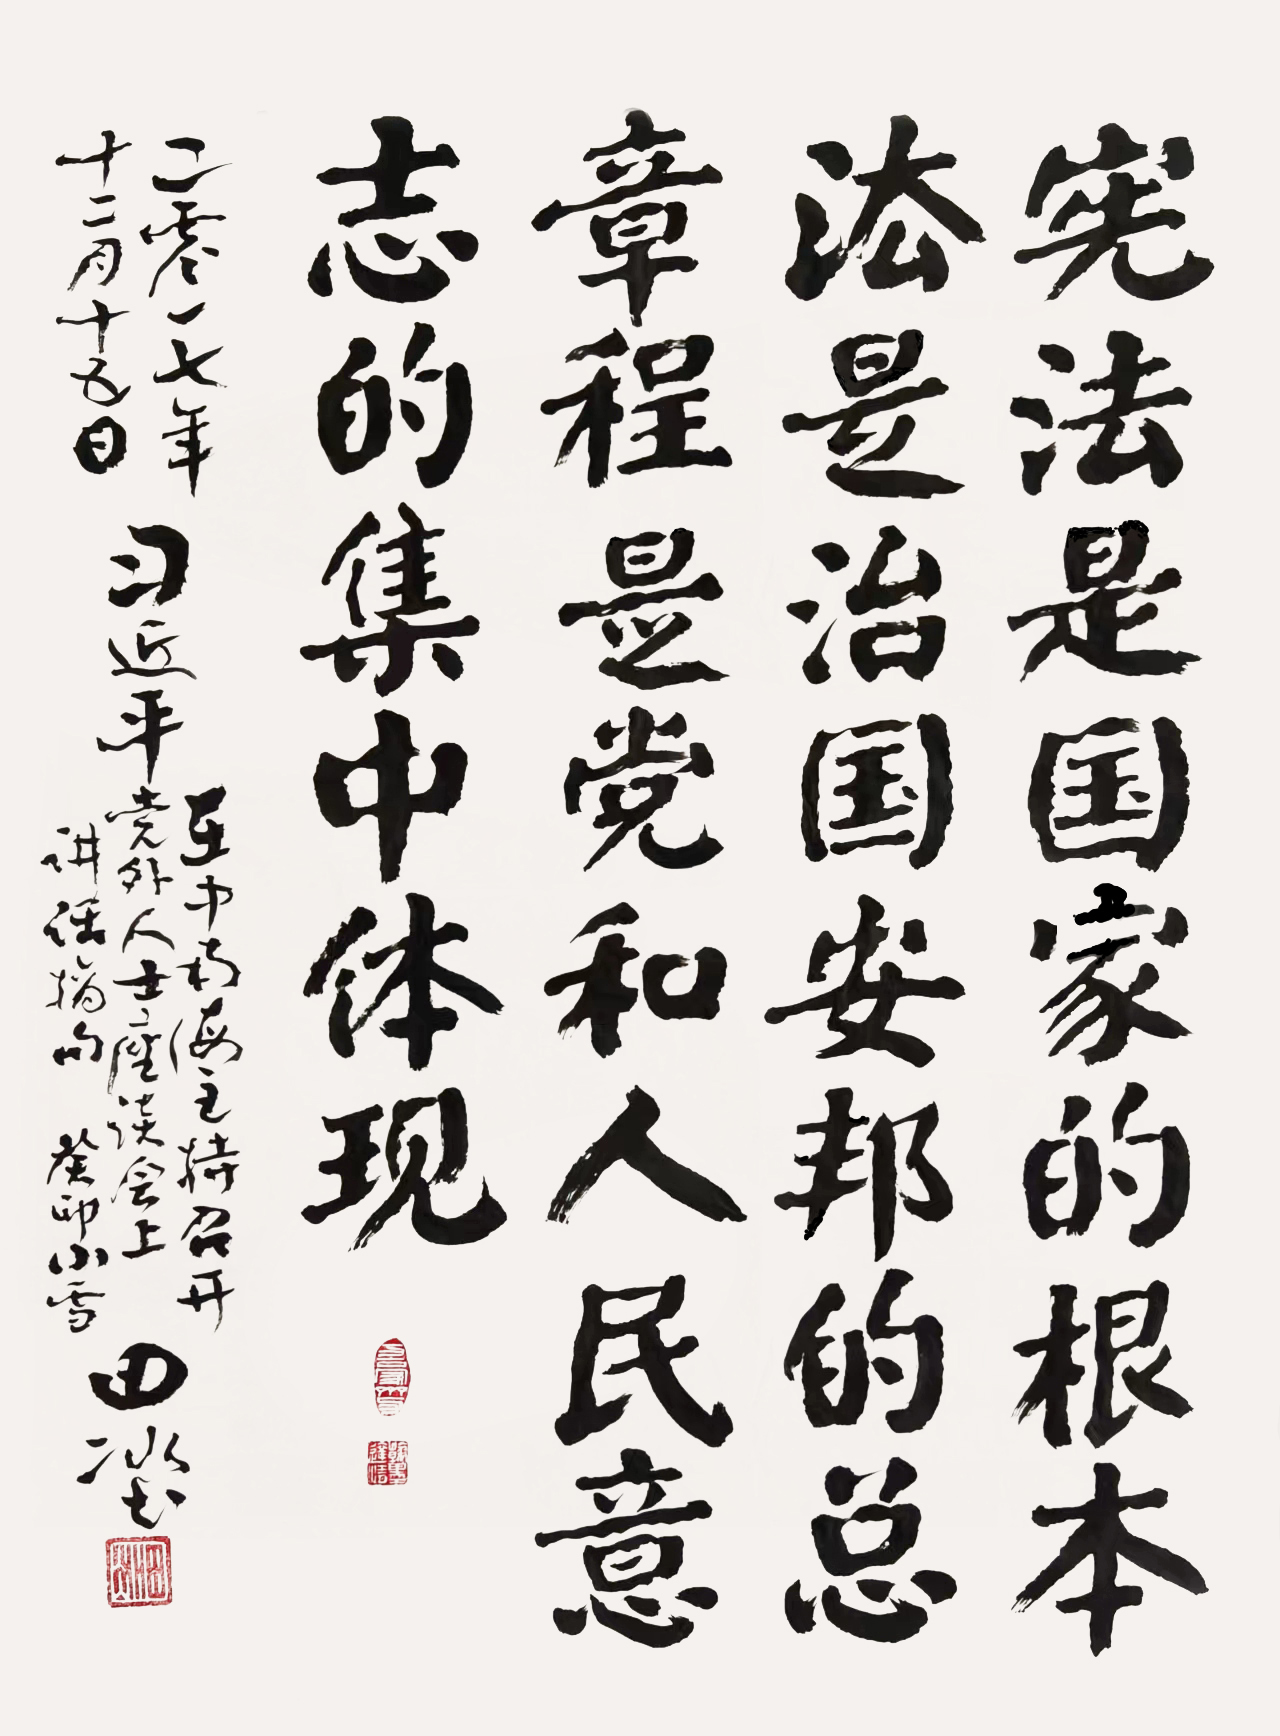 宪法是国家的根本
法是治国安邦的总
章程是党和人民意
志的集中体现
二零一七年
十二月十五日
习近平
在中南海主持召开
党外人士座谈会上
讲话摘句
癸卯小雪
田